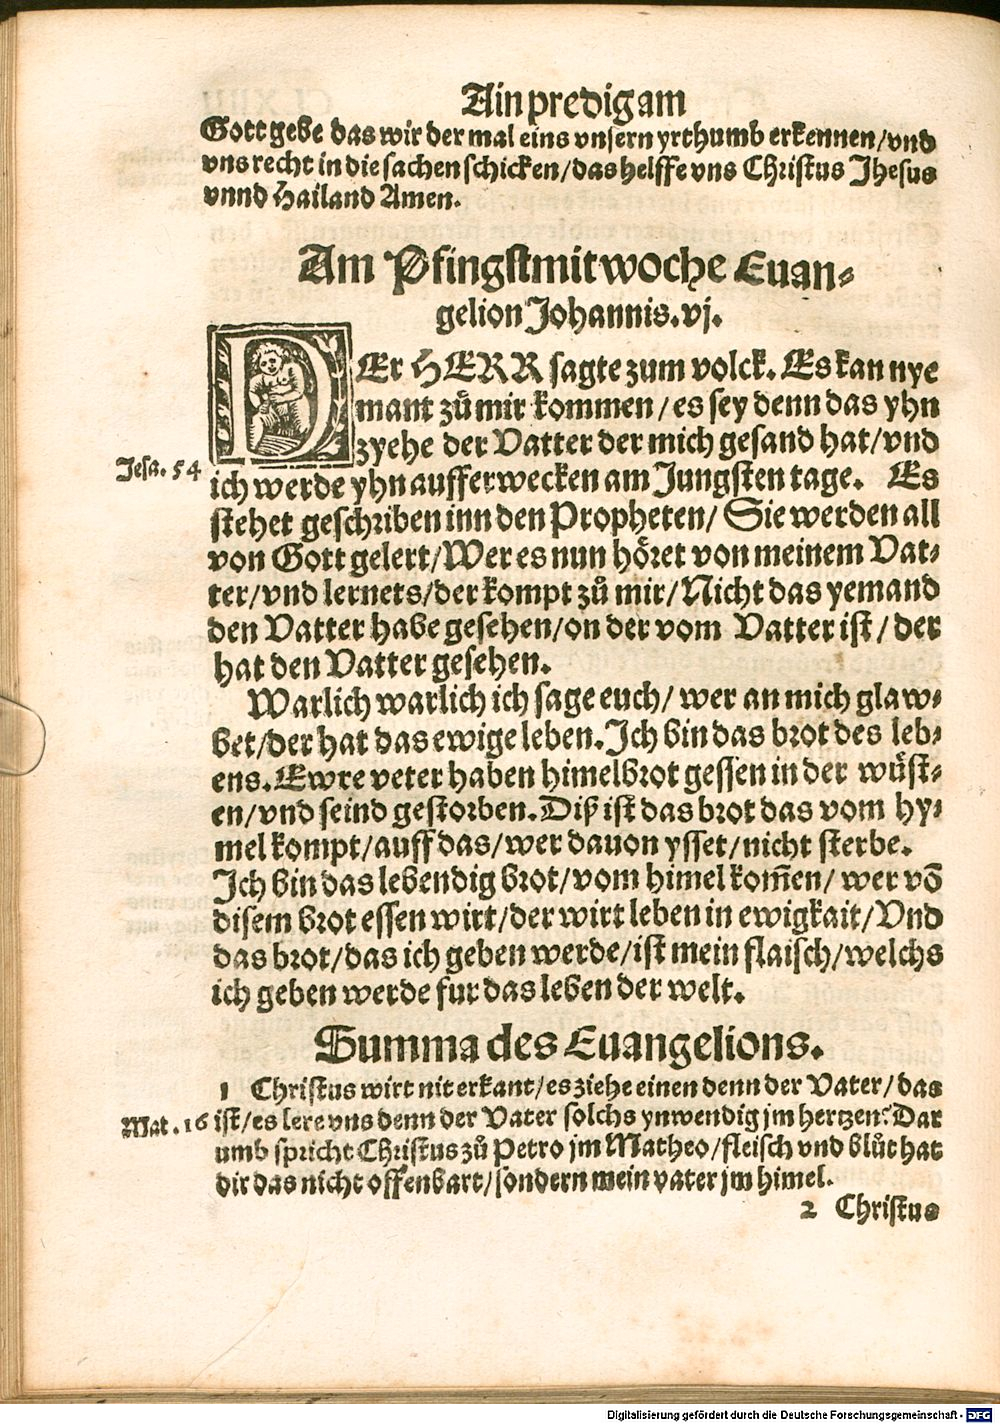 Ain predig am
Gott gebe das wir der mal eins vnsern yrthumb erkennen/vnd
vns recht in die sachen schicken/das helffe vns Christus Jhesus
vnnd Hailand Amen.
Am Pfingstmitwoche Euan-
gelion Johannis.vj.
DEr HERR sagte zum volck. Es kan nye
mant zů mir kommen/es sey denn das yhn
zyehe der Vatter der mich gesand hat/vnd
Jesa. 54
ich werde yhn aufferwecken am Jungsten tage. Es
stehet geschriben inn den Propheten/Sie werden all
von Gott gelert/Wer es nun höret von meinem Vat-
ter/vnd lernets/der kompt zů mir/Nicht das yemand
den Vatter habe gesehen/on der vom Vatter ist/der
hat den Vatter gesehen.
Warlich warlich ich sage euch/wer an mich glaw-
bet/der hat das ewige leben. Jch bin das brot des leb-
ens. Ewre veter haben himelbrot gessen in der wüst-
en/vnd seind gestorben. Diß ist das brot das vom hy-
mel kompt/auff das/wer dauon ysset/nicht sterbe.
Jch bin das lebendig brot/vom himel kom̄en/wer võ
disem brot essen wirt/der wirt leben in ewigkait/Vnd
das brot/das ich geben werde/ist mein flaisch/welchs
ich geben werde fur das leben der welt.
Summa des Euangelions.
1 Christus wirt nit erkant/es ziehe einen denn der Vater/das
Mat. 16
ist/es lere vns denn der Vater solchs ynwendig jm hertzen: Dar
umb spricht Christus zů Petro jm Matheo/fleisch vnd blůt hat
dir das nicht offenbart/sondern mein vater jm himel.
2 Christus
Digitalisierung gefördert durch die Deutsche Forschungsgemeinschaft - DFG